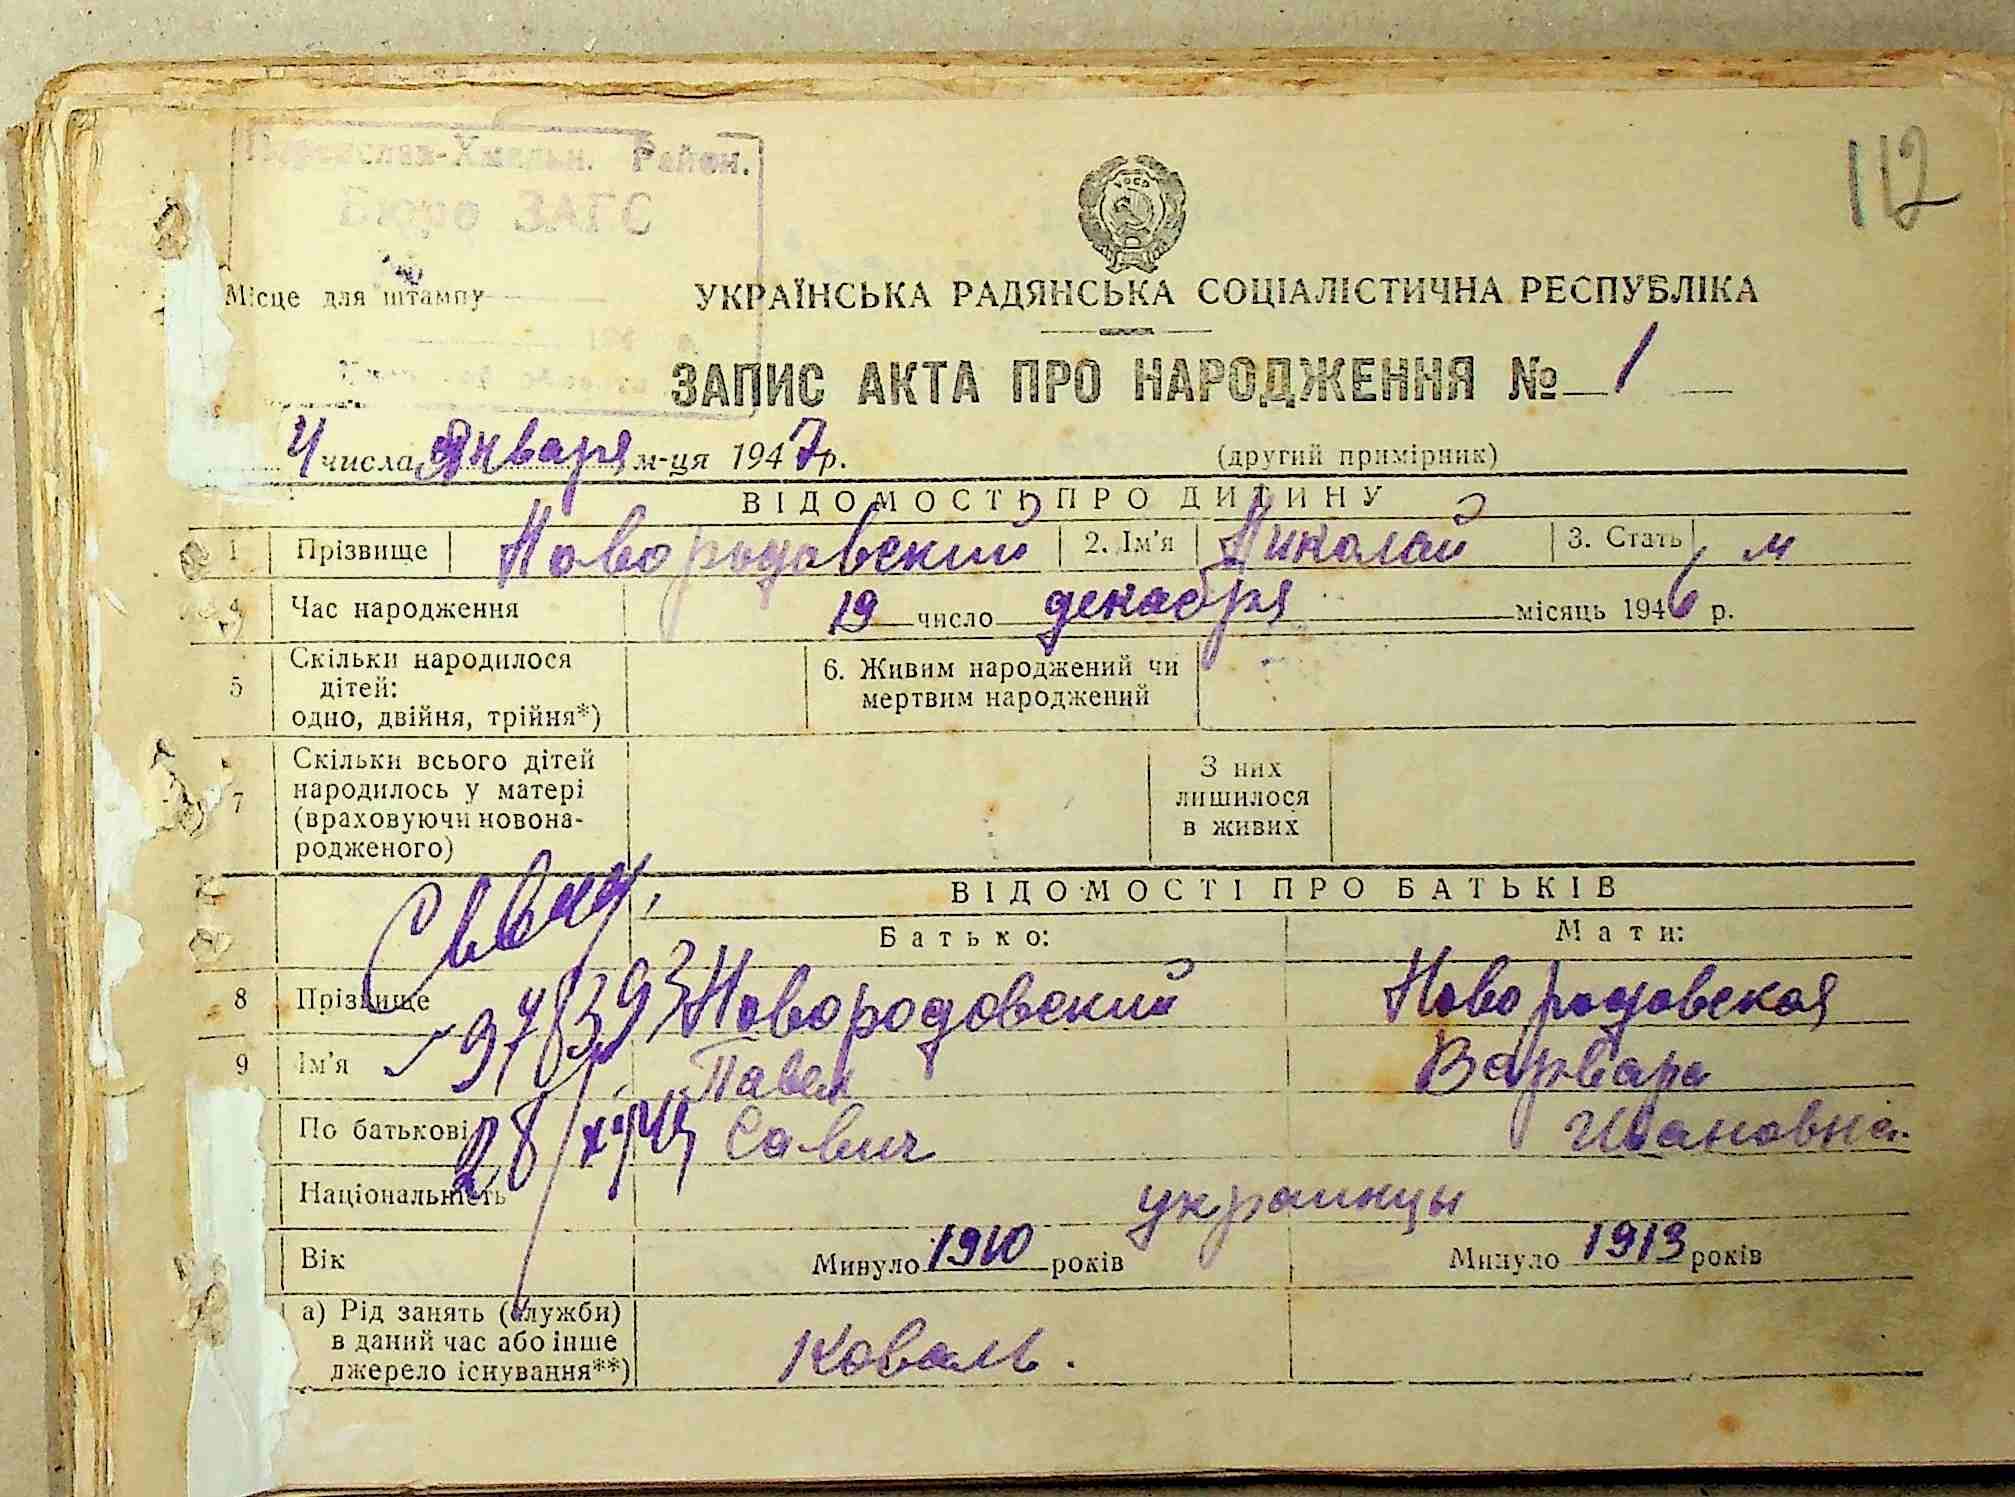 112
Район.
Бюро ЗАГС
УРСР
Місце для штампу
УКРАЇНСЬКА РАДЯНСЬКА СОЦІАЛІСТИЧНА РЕСПУБЛІКА
ЗАПИС АКТА ПРО НАРОДЖЕННЯ № 1
4 числа января м-ця 1947 р.
(другий примірник)
ВІДОМОСТІ ПРО ДИТИНУ
1 Прізвище Новородовский 2. Ім'я Николай 3. Стать м
4 Час народження 19 число декабря місяць 1946 р.
5 Скільки народилося дітей: одно, двійня, трійня*) 6. Живим народжений чи мертвим народжений
7 Скільки всього дітей народилось у матері (враховуючи новона-родженого) З них лишилося в живих
ВІДОМОСТІ ПРО БАТЬКІВ
Батько: Мати:
8 Прізвище Новородовский Новородовская
9 Ім'я Павел Варвара
По батькові Савич Ивановна
Національність украинцы
Вік Минуло 1910 років Минуло 1913 років
а) Рід занять (служби) в даний час або інше джерело існування**) Коваль.